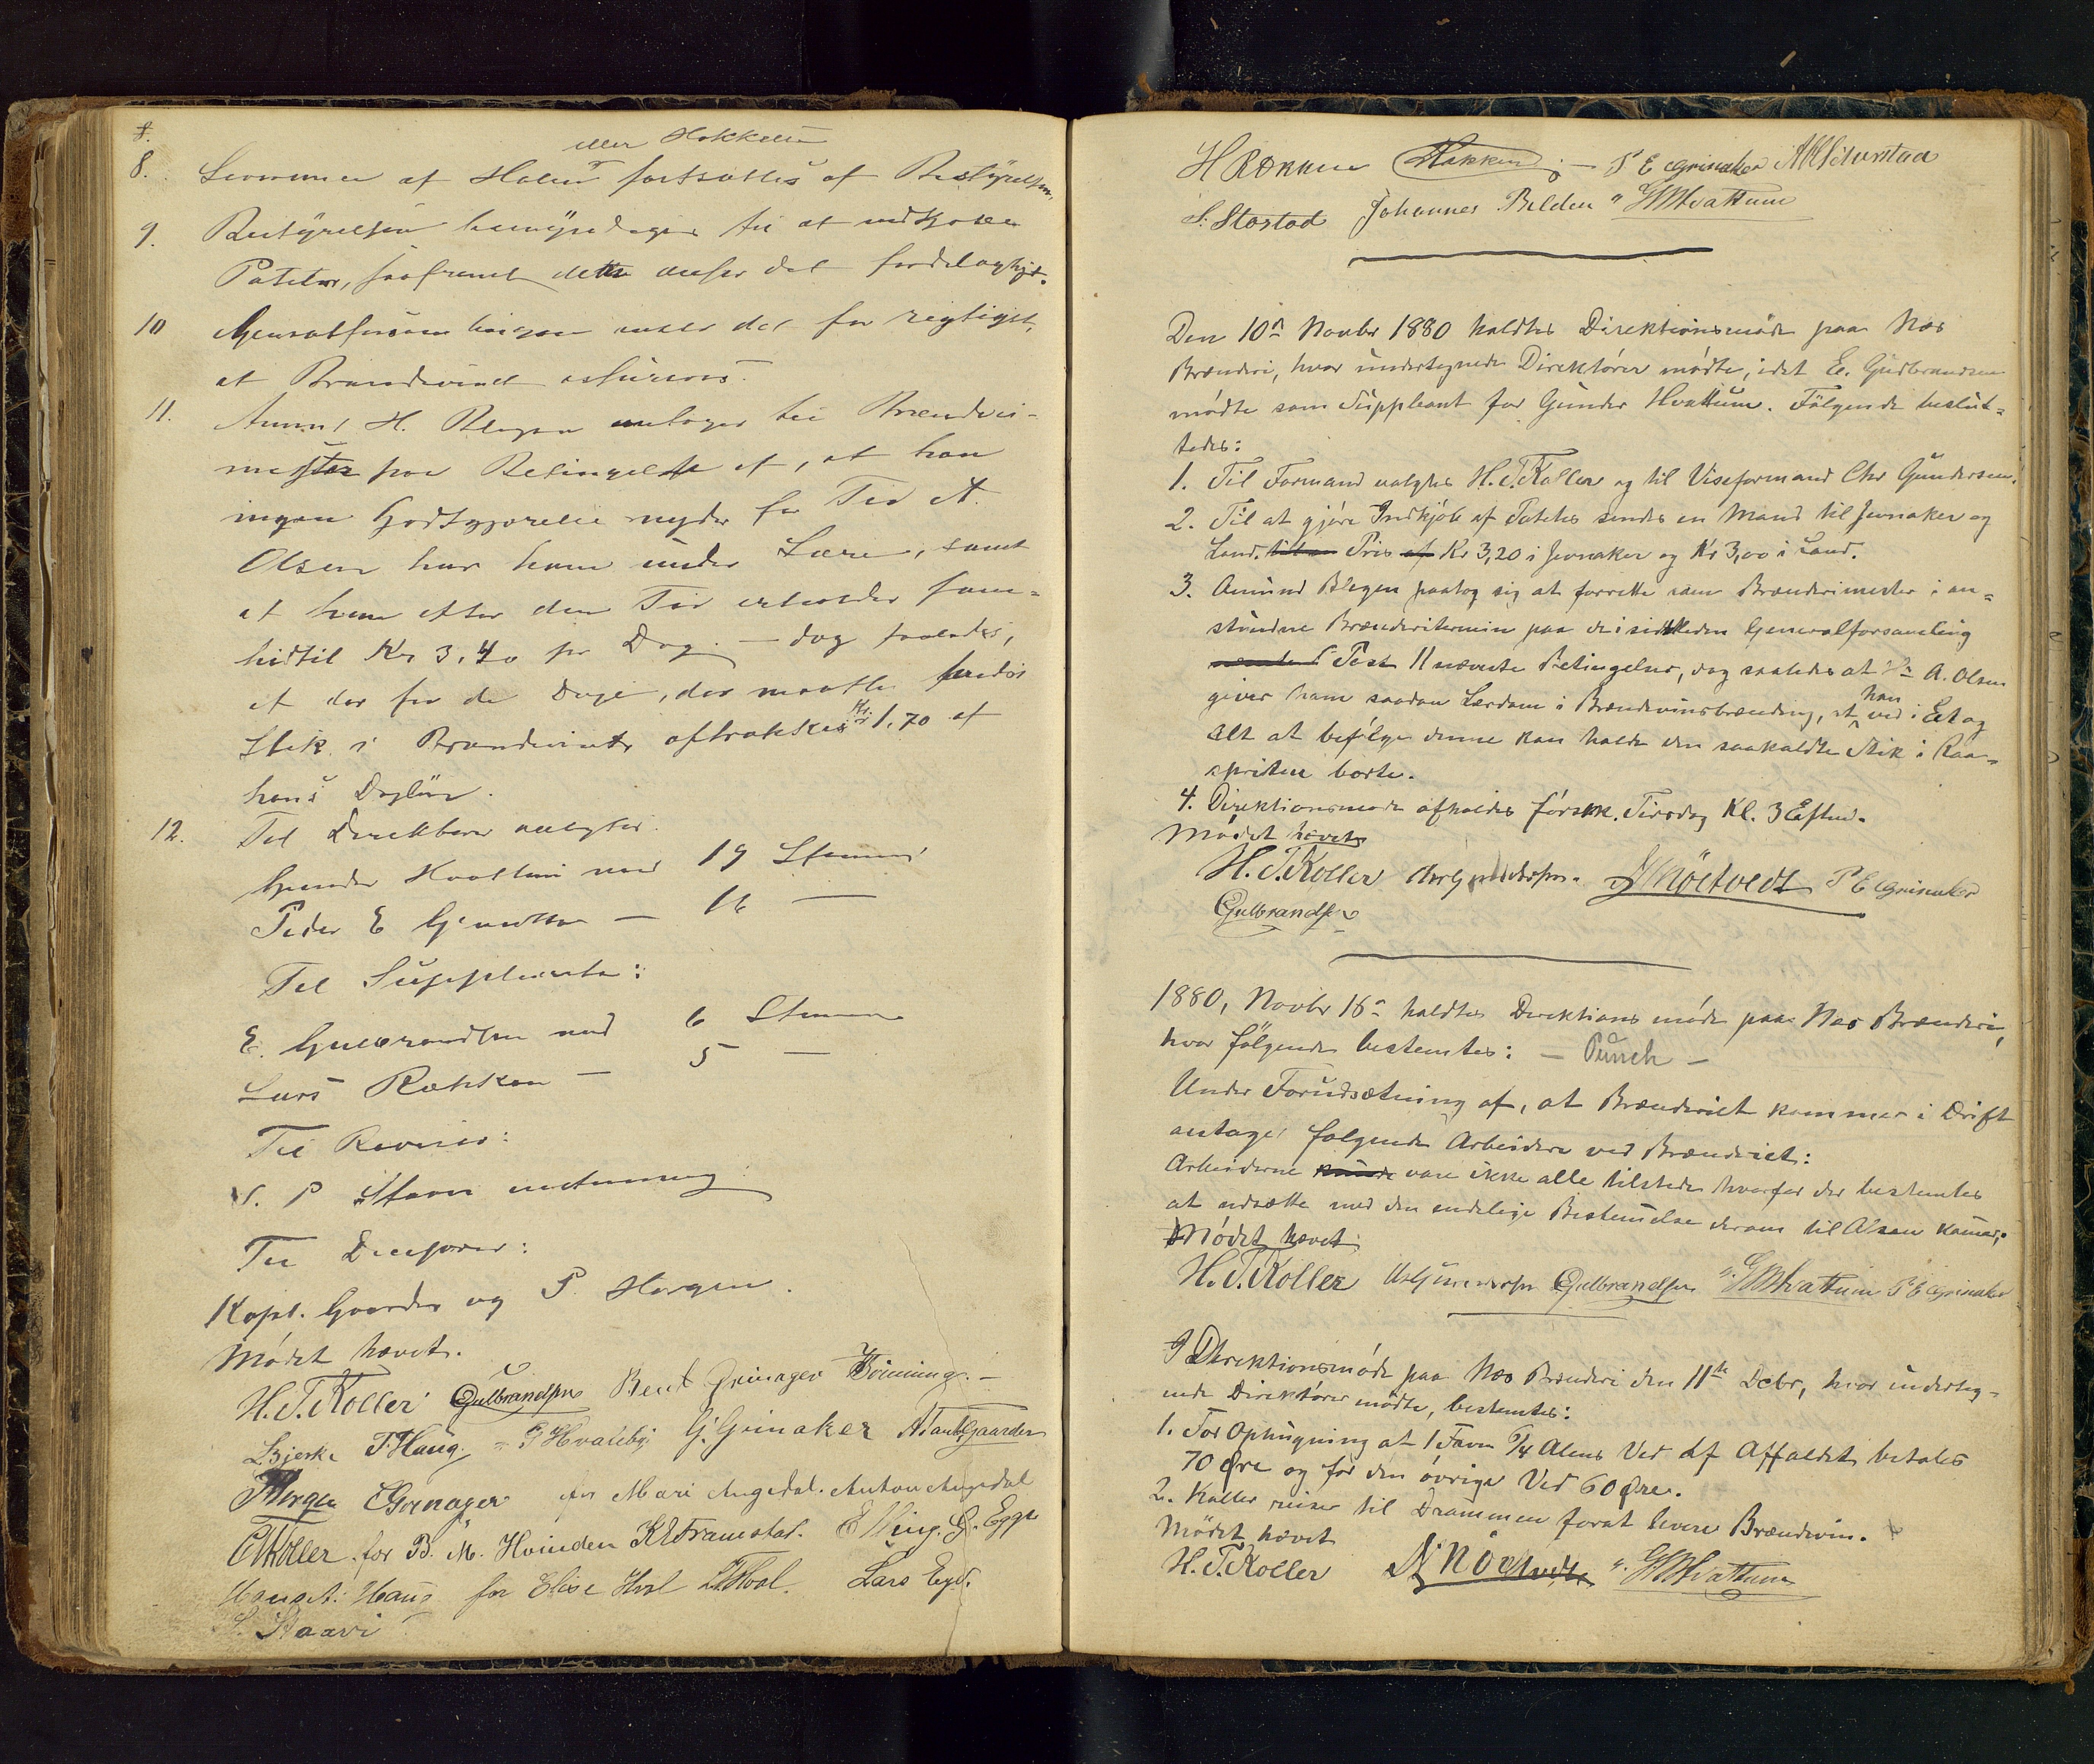 8.
eller Hakkelsen
8. Summen af Halm fortsættes af Bestyrelsen.
9. Bestyrelsen bemyndiges til at indkjøbe
Poteter, saafremt dette ansees det fordelagtigt.
10 Generalforsamlingen anser det for rigtigst,
at Brændevinet assureres.
11. Amund H. Blegen antages til Brænderi-
mester paa Betingelse af, at han
ingen Godtgjørelse nyder for Tid A.
Olsen har ham under Lære, samt
at han efter den Tid erholder som
hidtil Kr 3,40 pr Dag – dog saaledes,
at der for de Dage, der maatte findes
Stik i Brændevinet aftrækkes Kr. 1.70 af
hans Dagløn.
12. Til Direktører valgtes
Gunder Hvattum med 19 Stemmer
Peder E Grinaker — 16 —
Til Supplenter:
E. Gulbrandsen med 6 Stemmer
Lars Røkken — 5 —
Til Revisor:
P Staxr
Til Decisorer:
Kapt. Gaarder og P. Horgen.
Mødet hævet.
H. T. Koller Gulbrandsen Bent Grinager Bønning.
L Bjerke T. Haug. P Hvaleby G. Grinaker A Tandt Gaarder
P Horgen E Grinager for Mari Augedal. Anton Augedal
C Koller for B. M. Hvinden K E Framstad. Elling G. Egge
Hans A. Haug for Elise Hval L. Hval. Lars Egge
L. Staxri
H Røkken Hakken P E Grinaker
S. Stastad Johannes Belden G M Hvattum
Den 10n Novbr 1880 holdtes Direktionsmøde paa Næs
Brænderi, hvor undertegnede Direktører mødte, idet E. Gudbrandsen
mødte som Suppleant for Gunder Hvattum. Følgende beslut-
tedes:
1. Til Formand valgtes H. T. Koller og til Viseformand Chr Gundersen.
2. Til at gjøre Indkjøb af Potetes sendes en Mand til Jevnaker og
Land. til en Pris af Kr 3,20 i Jevnaker og Kr 3,00 i Land.
3. Amund Blegen paatog sig at forrette som Brænderimester i an-
stundne Brænderitermin paa de i sidstleden Generalforsamling
Post 11 nævnte Betingelser, dog saaledes at A. Olsen
giver ham saadan Lærdom i Brændevinsbrænding, at han ved i Et og
Alt at befølge denne kan holde den saakaldte Stik i Raa-
spriten borte.
4. Direktionsmøde afholdes førstk. Tirsdag Kl. 3 Efterm.
Mødet hævet
H. T. Koller Chr Gundersen. A Nøktvedt P E Grinaker
Gulbrandsen
1880, Novbr 16n holdtes Direktions møde paa Næs Brænderi,
hvor følgende bestemtes: — Punch —
Under Forudsætning af, at Brænderiet kommer i Drift
antages følgende Arbeidere ved Brænderiet:
Arbeiderne kunde vare ikke alle tilstede hvorfor der bestemtes
at udsætte med den endelige Bestemelse derom til Olsen kommer.
Mødet hævet
H. T. Koller Chr Gundersen Gulbrandsen G M Hvattum P E Grinaker
I Direktionsmøde paa Næs Brænderi den 11te Debr, hvor underteg-
nede Direktører mødte, bestemtes:
1. For Ophugning af 1 Favn 5/4 Alens Ved af Affaldet betales
70 Øre og for den øvrige Ved 60 Øre.
2. Koller reiser til Drammen forat levere Brændevin.
Mødet hævet
H. T. Koller A Nøktvedt G M Hvattum